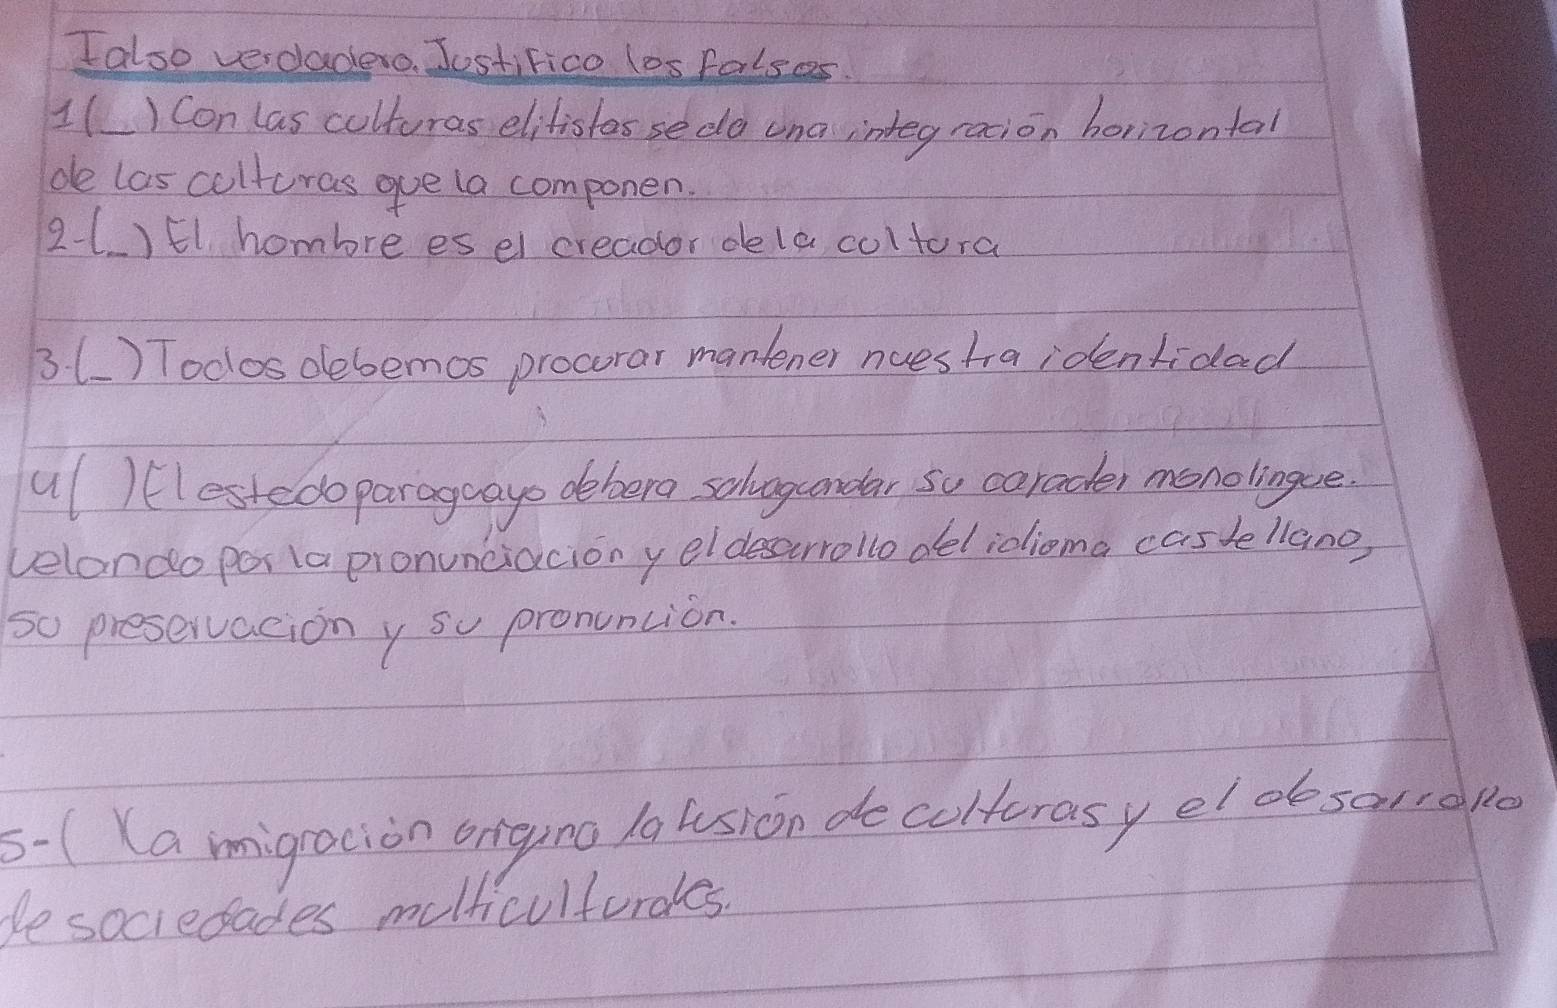 Falso verdadero. Justifico los falsos.
1 (_) Con las culturas elitistas se da una integración horizontal
de las culturas que la componen.
2-(_) El hombre es el creador de la cultura
3.(_) Todos debemos procurar mantener nuestra identidad
4( ) El estado paraguayo debera salvaguardar su caracter monolingue.
velando por la pronunciación y el desarrollo del idioma castellano,
su preservación y su pronunción.
5-( La imigración origina la fusión de culturas y el desarrollo
de sociedades multiculturales.